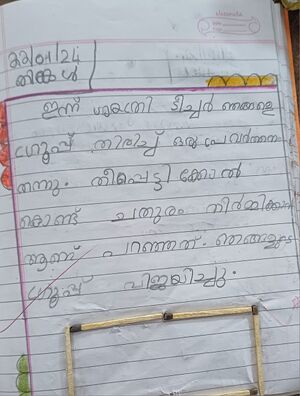 22/01/24
തിങ്കൾ
ഇന്ന് ഗായത്രി ടീച്ചർ ഞങ്ങളെ
ഗ്രൂപ്പ് തിരിച്ച് ഒരു പ്രവർത്തനം
തന്നു. തീപ്പെട്ടി കോൽ
കൊണ്ട് ചതുരം നിർമ്മിക്കാൻ
ആണ് പറഞ്ഞത്. ഞങ്ങളുടെ
ഗ്രൂപ്പ് വിജയിച്ചു.